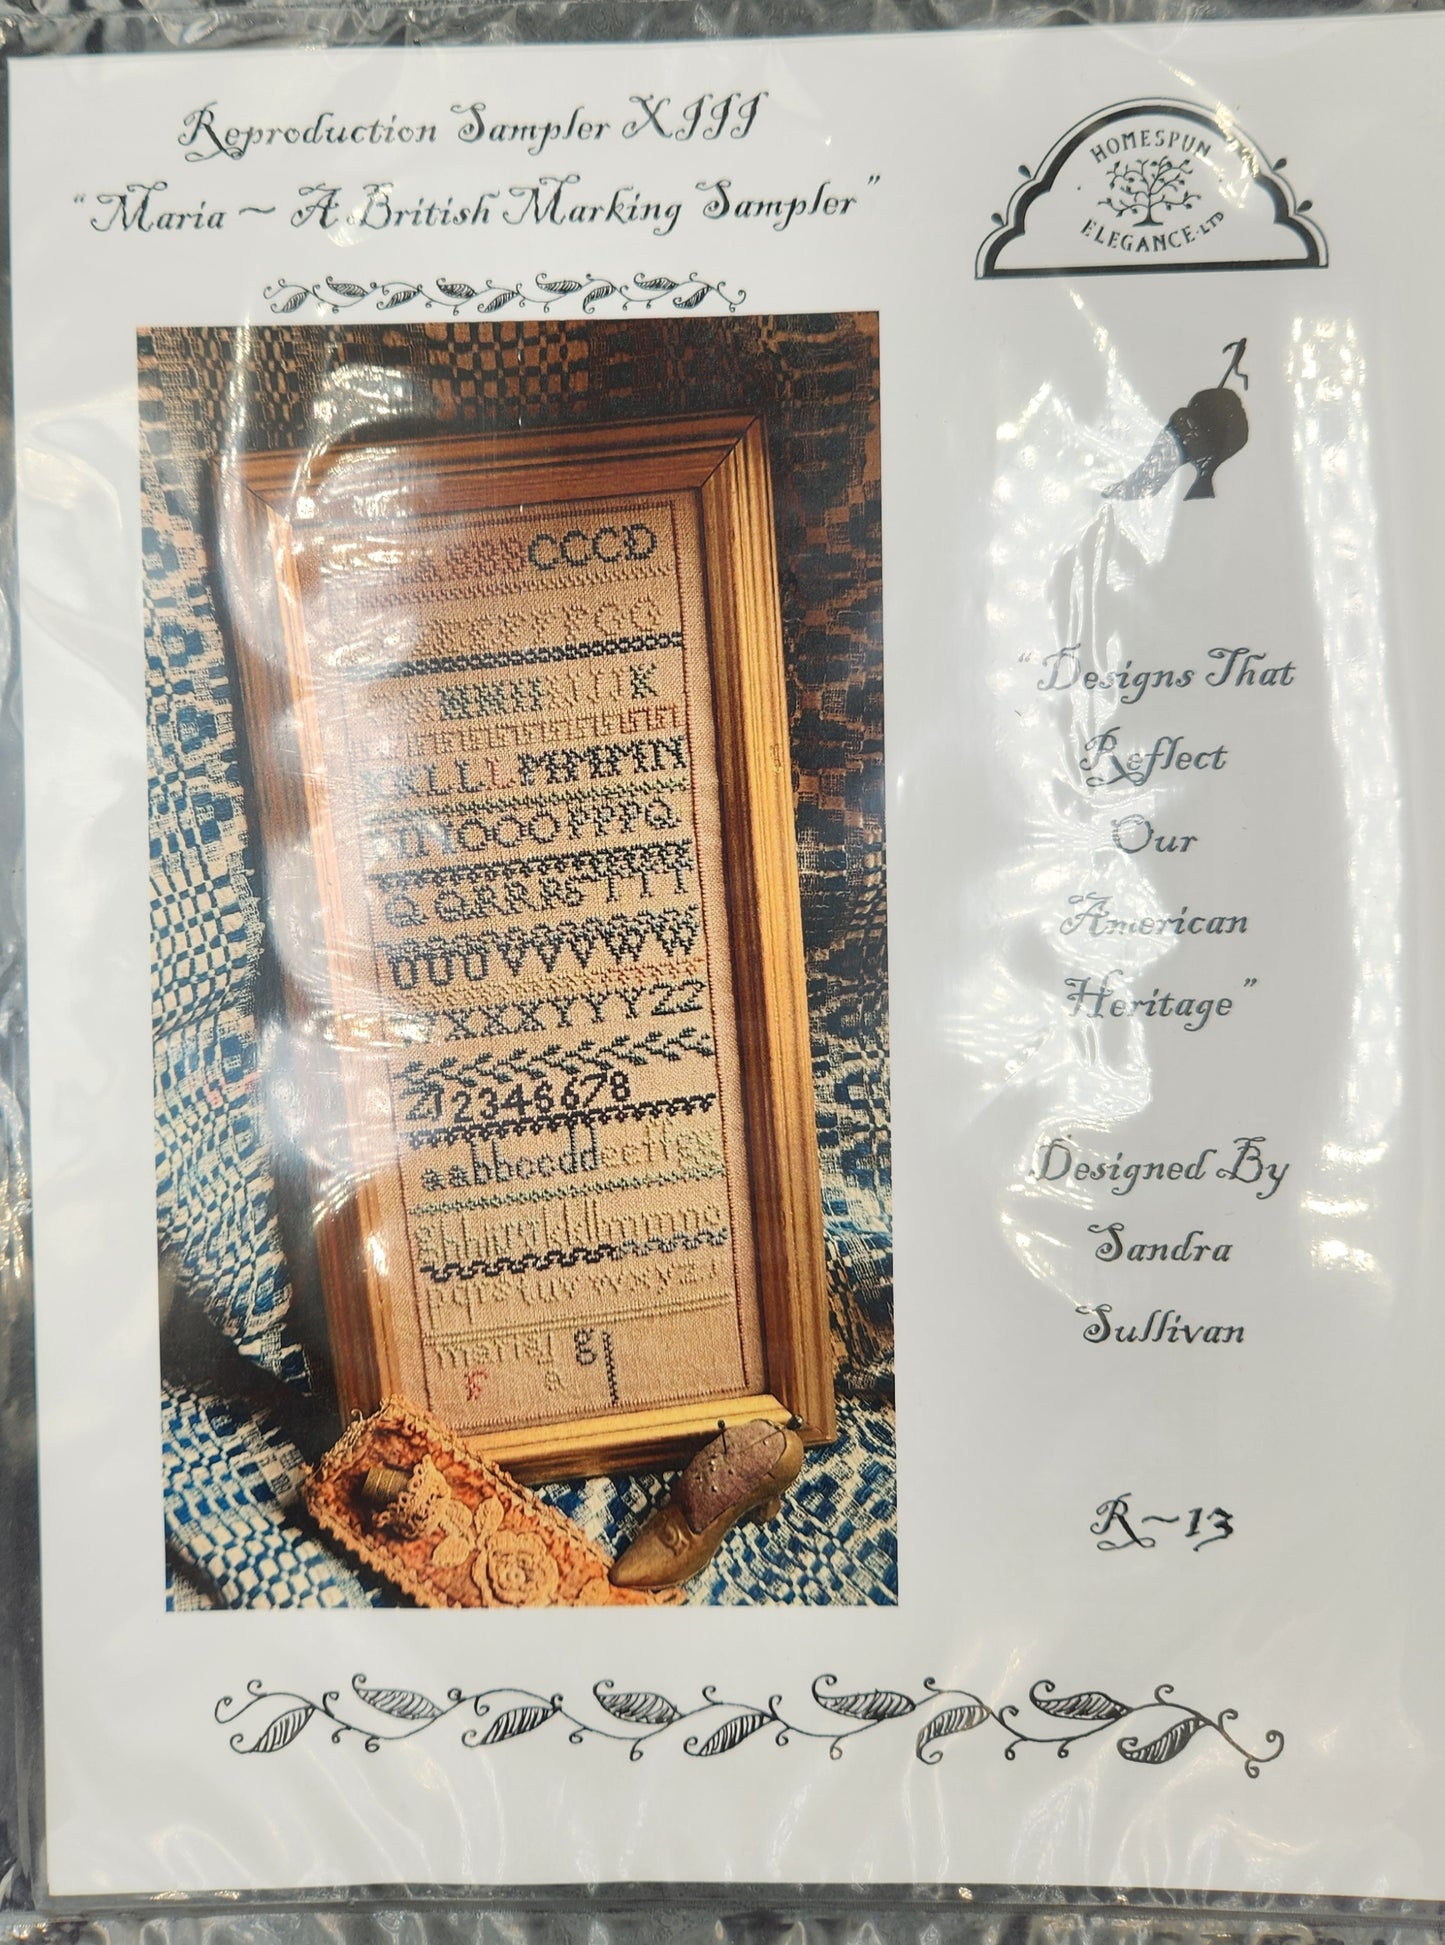 Reproduction Sampler XIII
"Maria ~ A British Marking Sampler"
HOMESPUN
ELEGANCE·LTD
"Designs That
Reflect
Our
American
Heritage"
Designed By
Sandra
Sullivan
R~13
CCCD
K
LLLMMMN
OOOPPPQ
QQRRRSTTT
UUUVVVWW
XXXYYYZZ
Z12346678
aabbccddeeff
pqrstuvwxyz
g
a